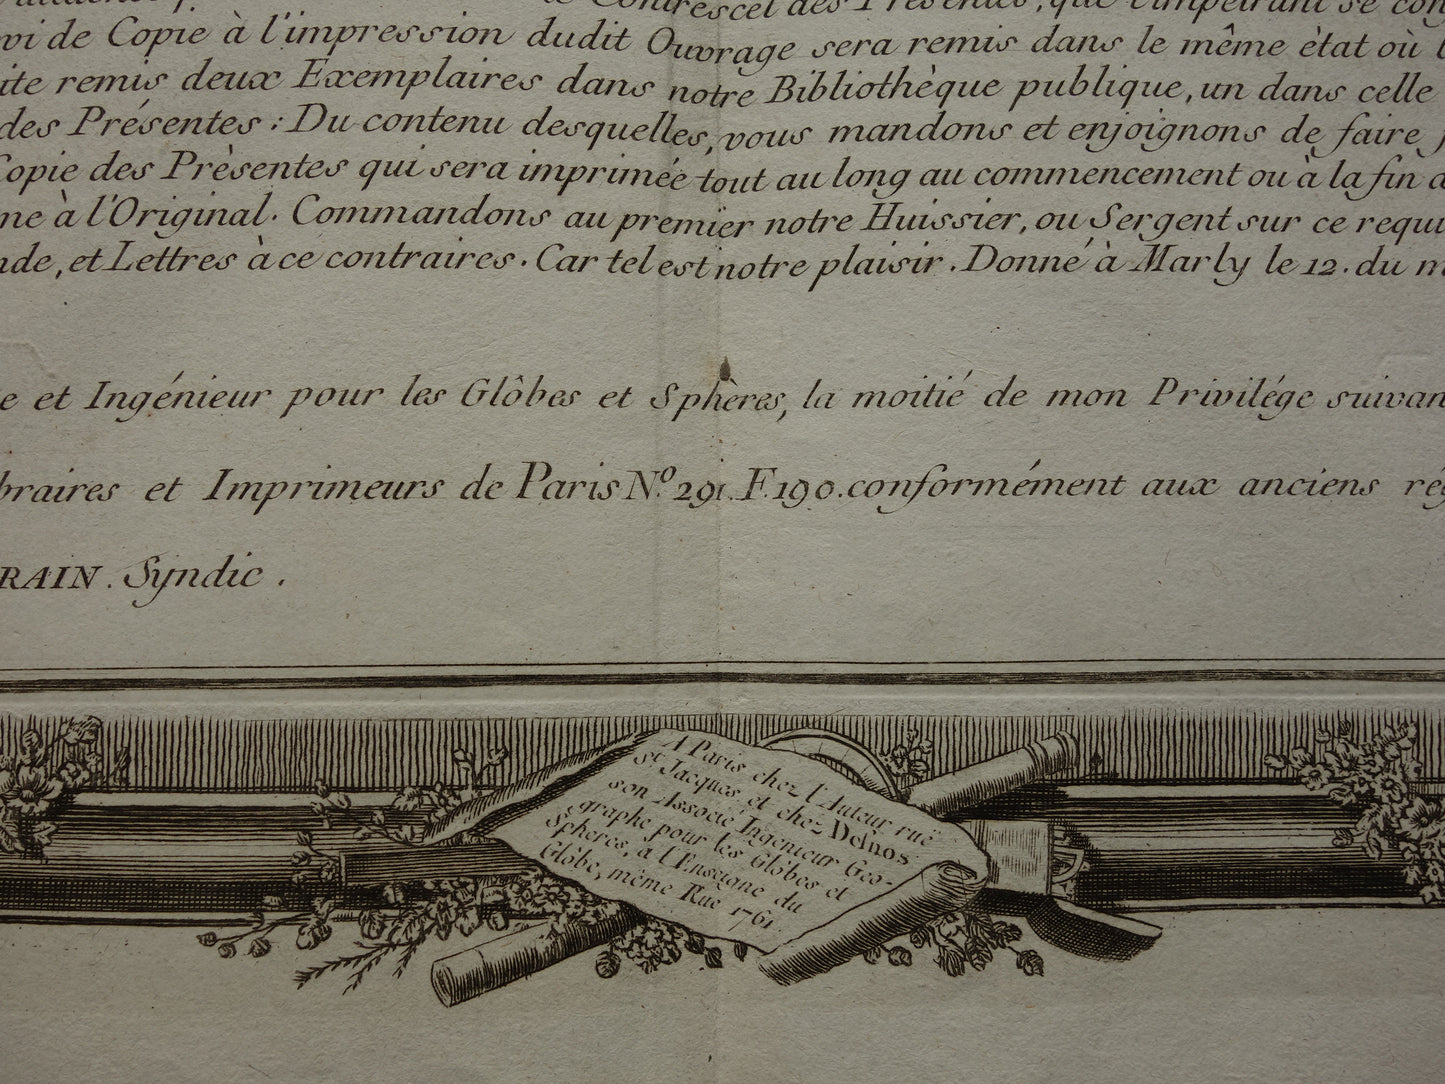 Contrescel des Présentes, que l'impétrant se
de Copie à l'impression dudit Ouvrage sera remis dans le même ètat où
remis deux Exemplaires dans notre Bibliothèque publique, un dans celle
des Présentes : Du contenu desquelles, vous mandons et enjoignons de faire
Copie des Prèsentes qui sera imprimée tout au long au commencement ou à la fin
à l'Original. Commandons au premier notre Huissier, ou Sergent sur ce
et Lettres à ce contraires. Car tel est notre plaisir. Donné à Marly le 12. du
et Ingénieur pour les Glôbes et Sphères, la moitié de mon Privilége
et Imprimeurs de Paris No. 291. F. 190. conformément aux anciens
RAIN. Syndic.
A Paris chez l'Auteur ruë
St Jacques et chez Delnos
son Associé Ingenieur Geo-
graphe pour les Glôbes et
Spheres, a l'Enseigne du
Glôbe, même Rue 1761